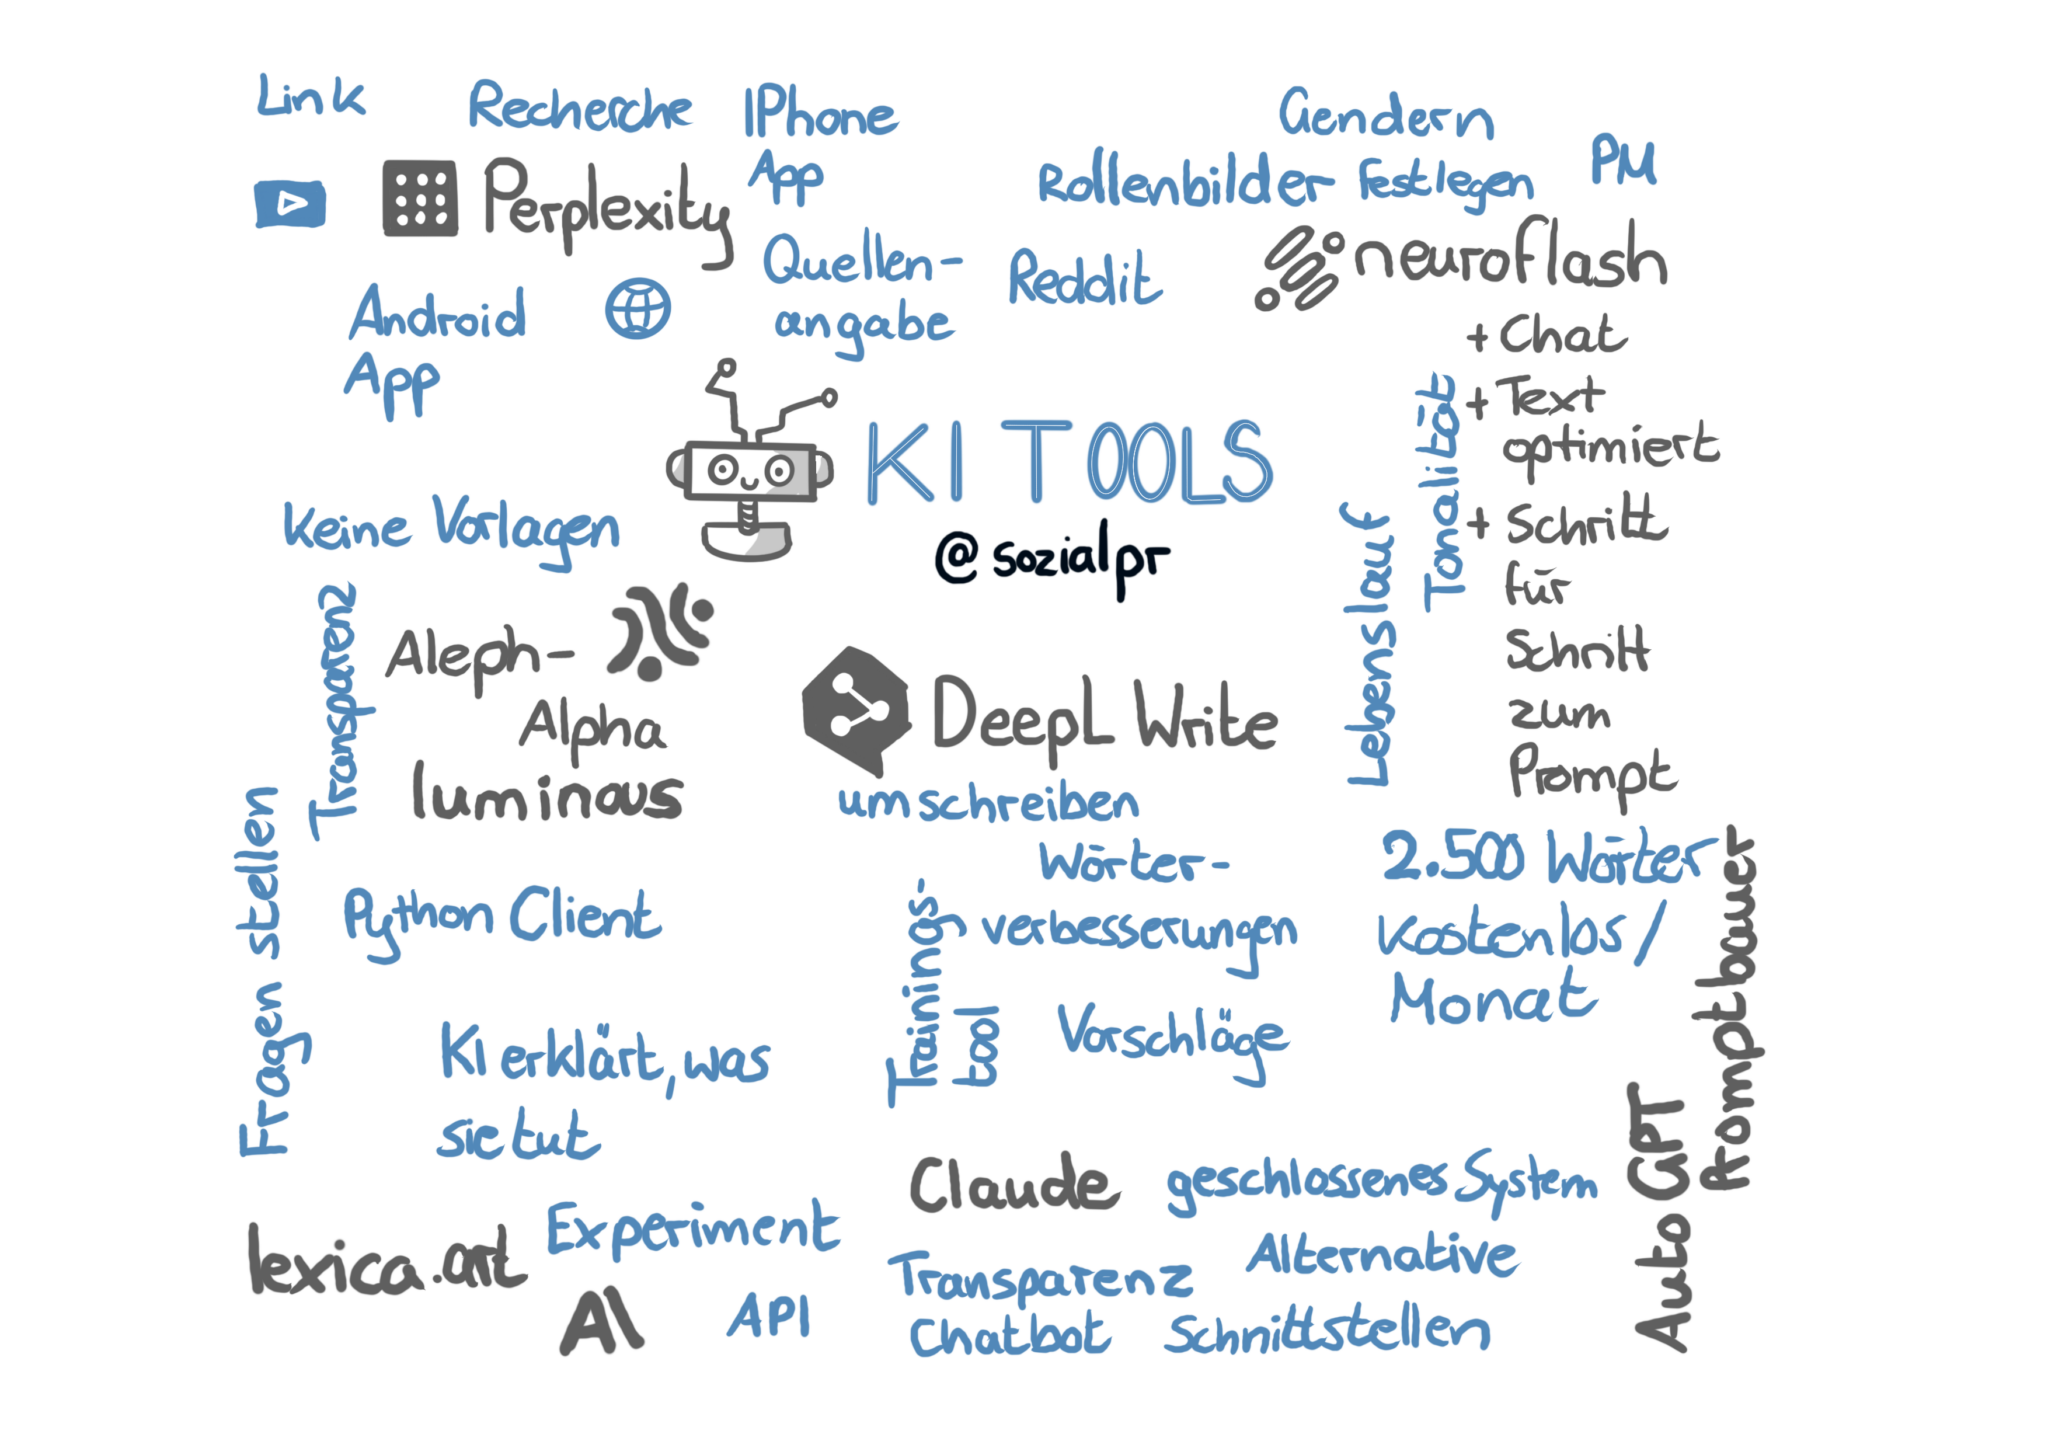 Link
Recherche
IPhone
App
Perplexity
Android
App
Quellen-
angabe
Reddit
Gendern
Rollenbilder festlegen
PM
neuroflash
+ Chat
+ Text
optimiert
+ Schritt
für
Schritt
zum
Prompt
Tonalität
Lebenslauf
2.500 Wörter
kostenlos/
Monat
KI TOOLS
@sozialpr
Keine Vorlagen
Transparenz
Aleph-
Alpha
luminous
Fragen stellen
Python Client
KI erklärt, was
sie tut
DeepL Write
umschreiben
Wörter-
verbesserungen
Trainings-
tool
Vorschläge
lexica.art
Experiment
A\
API
Claude
geschlossenes System
Transparenz
Alternative
Chatbot
Schnittstellen
Auto GPT
Promptbauer